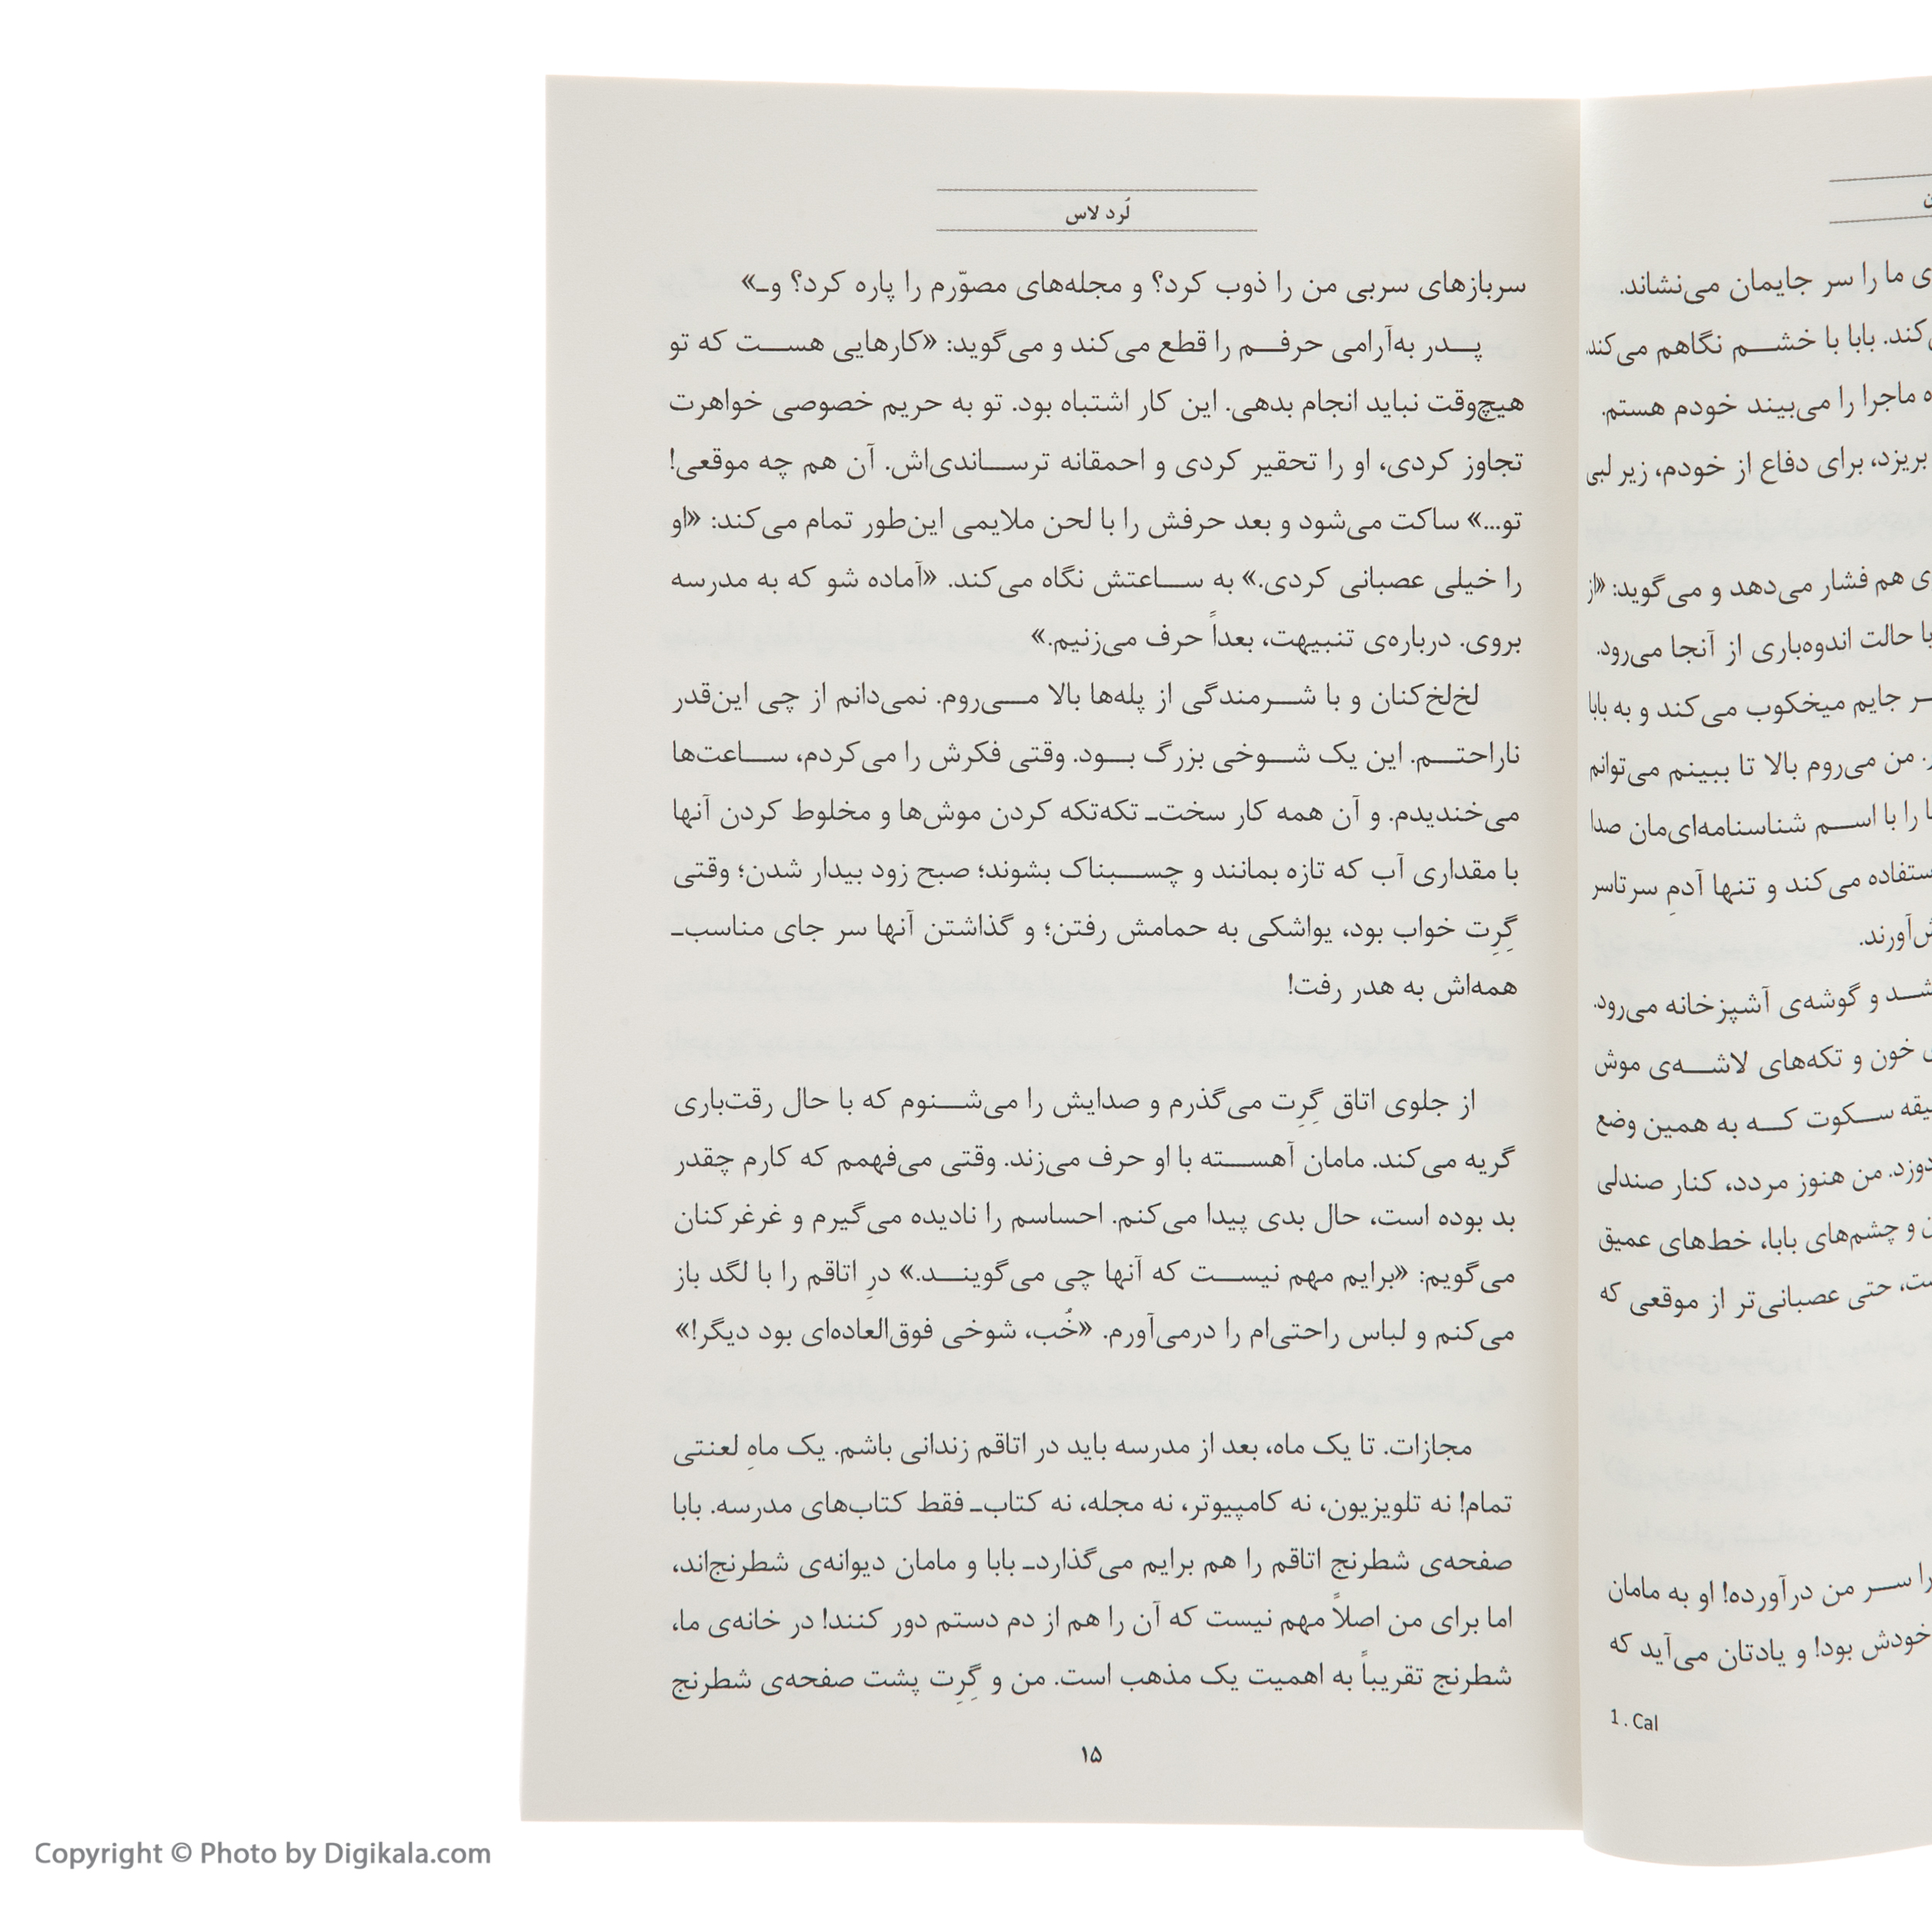 ی ما را سر جایمان می‌نشاند.
کند. بابا با خشم نگاهم می‌کند.
ماجرا را می‌بیند خودم هستم.
بریزد، برای دفاع از خودم، زیر لبی
ی هم فشار می‌دهد و می‌گوید: «از
با حالت اندوه‌باری از آنجا می‌رود.
جایم میخکوب می‌کند و به بابا
من می‌روم بالا تا ببینم می‌توانم
را با اسم شناسنامه‌ای‌مان صدا
ستفاده می‌کند و تنها آدمِ سرتاسر
ش‌آورند.
شد و گوشه‌ی آشپزخانه می‌رود.
خون و تکه‌های لاشه‌ی موش
یقه سکوت که به همین وضع
دوزد. من هنوز مردد، کنار صندلی
ن و چشم‌های بابا، خط‌های عمیق
ست، حتی عصبانی‌تر از موقعی که
را سر من درآورده! او به مامان
خودش بود! و یادتان می‌آید که
1. Cal
لُرد لاس
سربازهای سربی من را ذوب کرد؟ و مجله‌های مصوّرم را پاره کرد؟ و-»
پدر به‌آرامی حرفم را قطع می‌کند و می‌گوید: «کارهایی هست که تو
هیچ‌وقت نباید انجام بدهی. این کار اشتباه بود. تو به حریم خصوصی خواهرت
تجاوز کردی، او را تحقیر کردی و احمقانه ترساندی‌اش. آن هم چه موقعی!
تو...» ساکت می‌شود و بعد حرفش را با لحن ملایمی این‌طور تمام می‌کند: «او
را خیلی عصبانی کردی.» به ساعتش نگاه می‌کند. «آماده شو که به مدرسه
بروی. درباره‌ی تنبیهت، بعداً حرف می‌زنیم.»
لخ‌لخ‌کنان و با شرمندگی از پله‌ها بالا می‌روم. نمی‌دانم از چی این‌قدر
ناراحتم. این یک شوخی بزرگ بود. وقتی فکرش را می‌کردم، ساعت‌ها
می‌خندیدم. و آن همه کار سخت- تکه‌تکه کردن موش‌ها و مخلوط کردن آنها
با مقداری آب که تازه بمانند و چسبناک بشوند؛ صبح زود بیدار شدن؛ وقتی
گِرِت خواب بود، یواشکی به حمامش رفتن؛ و گذاشتن آنها سر جای مناسب-
همه‌اش به هدر رفت!
از جلوی اتاق گِرِت می‌گذرم و صدایش را می‌شنوم که با حال رقت‌باری
گریه می‌کند. مامان آهسته با او حرف می‌زند. وقتی می‌فهمم که کارم چقدر
بد بوده است، حال بدی پیدا می‌کنم. احساسم را نادیده می‌گیرم و غرغرکنان
می‌گویم: «برایم مهم نیست که آنها چی می‌گویند.» درِ اتاقم را با لگد باز
می‌کنم و لباس راحتی‌ام را درمی‌آورم. «خُب، شوخی فوق‌العاده‌ای بود دیگر!»
مجازات. تا یک ماه، بعد از مدرسه باید در اتاقم زندانی باشم. یک ماهِ لعنتی
تمام! نه تلویزیون، نه کامپیوتر، نه مجله، نه کتاب- فقط کتاب‌های مدرسه. بابا
صفحه‌ی شطرنج اتاقم را هم برایم می‌گذارد- بابا و مامان دیوانه‌ی شطرنج‌اند،
اما برای من اصلاً مهم نیست که آن را هم از دم دستم دور کنند! در خانه‌ی ما،
شطرنج تقریباً به اهمیت یک مذهب است. من و گِرِت پشت صفحه‌ی شطرنج
۱۵
Copyright © Photo by Digikala.com